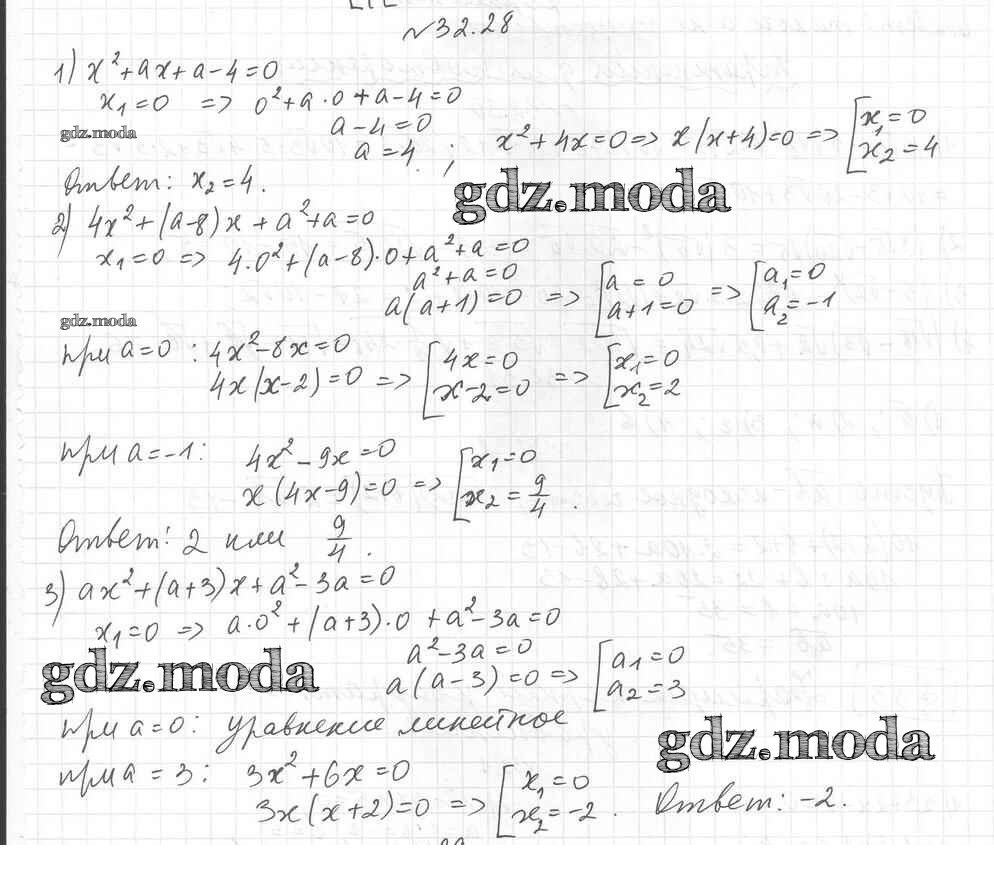 №32.28
1) x²+ax+a-4=0
x₁=0 => 0²+a·0+a-4=0
gdz.moda
a-4=0
a=4; x²+4x=0 => x(x+4)=0 => [x₁=0
x₂=4
Ответ: x₂=4.
gdz.moda
2) 4x²+(a-8)x+a²+a=0
x₁=0 => 4·0²+(a-8)·0+a²+a=0
a²+a=0
a(a+1)=0 => [a=0 => [a₁=0
a+1=0 a₂=-1
gdz.moda
при a=0: 4x²-8x=0
4x(x-2)=0 => [4x=0 => [x₁=0
x-2=0 x₂=2
при a=-1: 4x²-9x=0
x(4x-9)=0 => [x₁=0
x₂=9/4.
Ответ: 2 или 9/4.
3) ax²+(a+3)x+a²-3a=0
x₁=0 => a·0²+(a+3)·0+a²-3a=0
a²-3a=0
gdz.moda
a(a-3)=0 => [a₁=0
a₂=3
при a=0: уравнение линейное
gdz.moda
при a=3: 3x²+6x=0
3x(x+2)=0 => [x₁=0
x₂=-2. Ответ: -2.